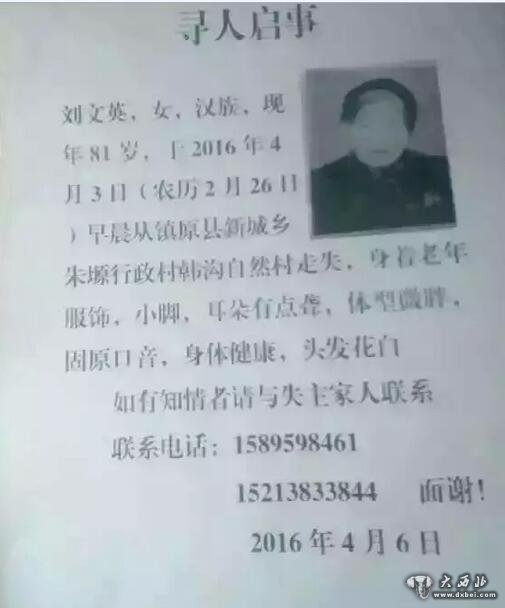 寻人启事
刘文英，女，汉族，现
年81岁，于2016年4
月3日（农历2月26日
）早晨从镇原县新城乡
朱塬行政村韩沟自然村走失，身着老年
服饰，小脚，耳朵有点聋，体型微胖，
固原口音，身体健康，头发花白
如有知情者请与失主家人联系
联系电话：1589598461
15213833844 面谢！
2016年4月6日
大西北
www.dxbei.com